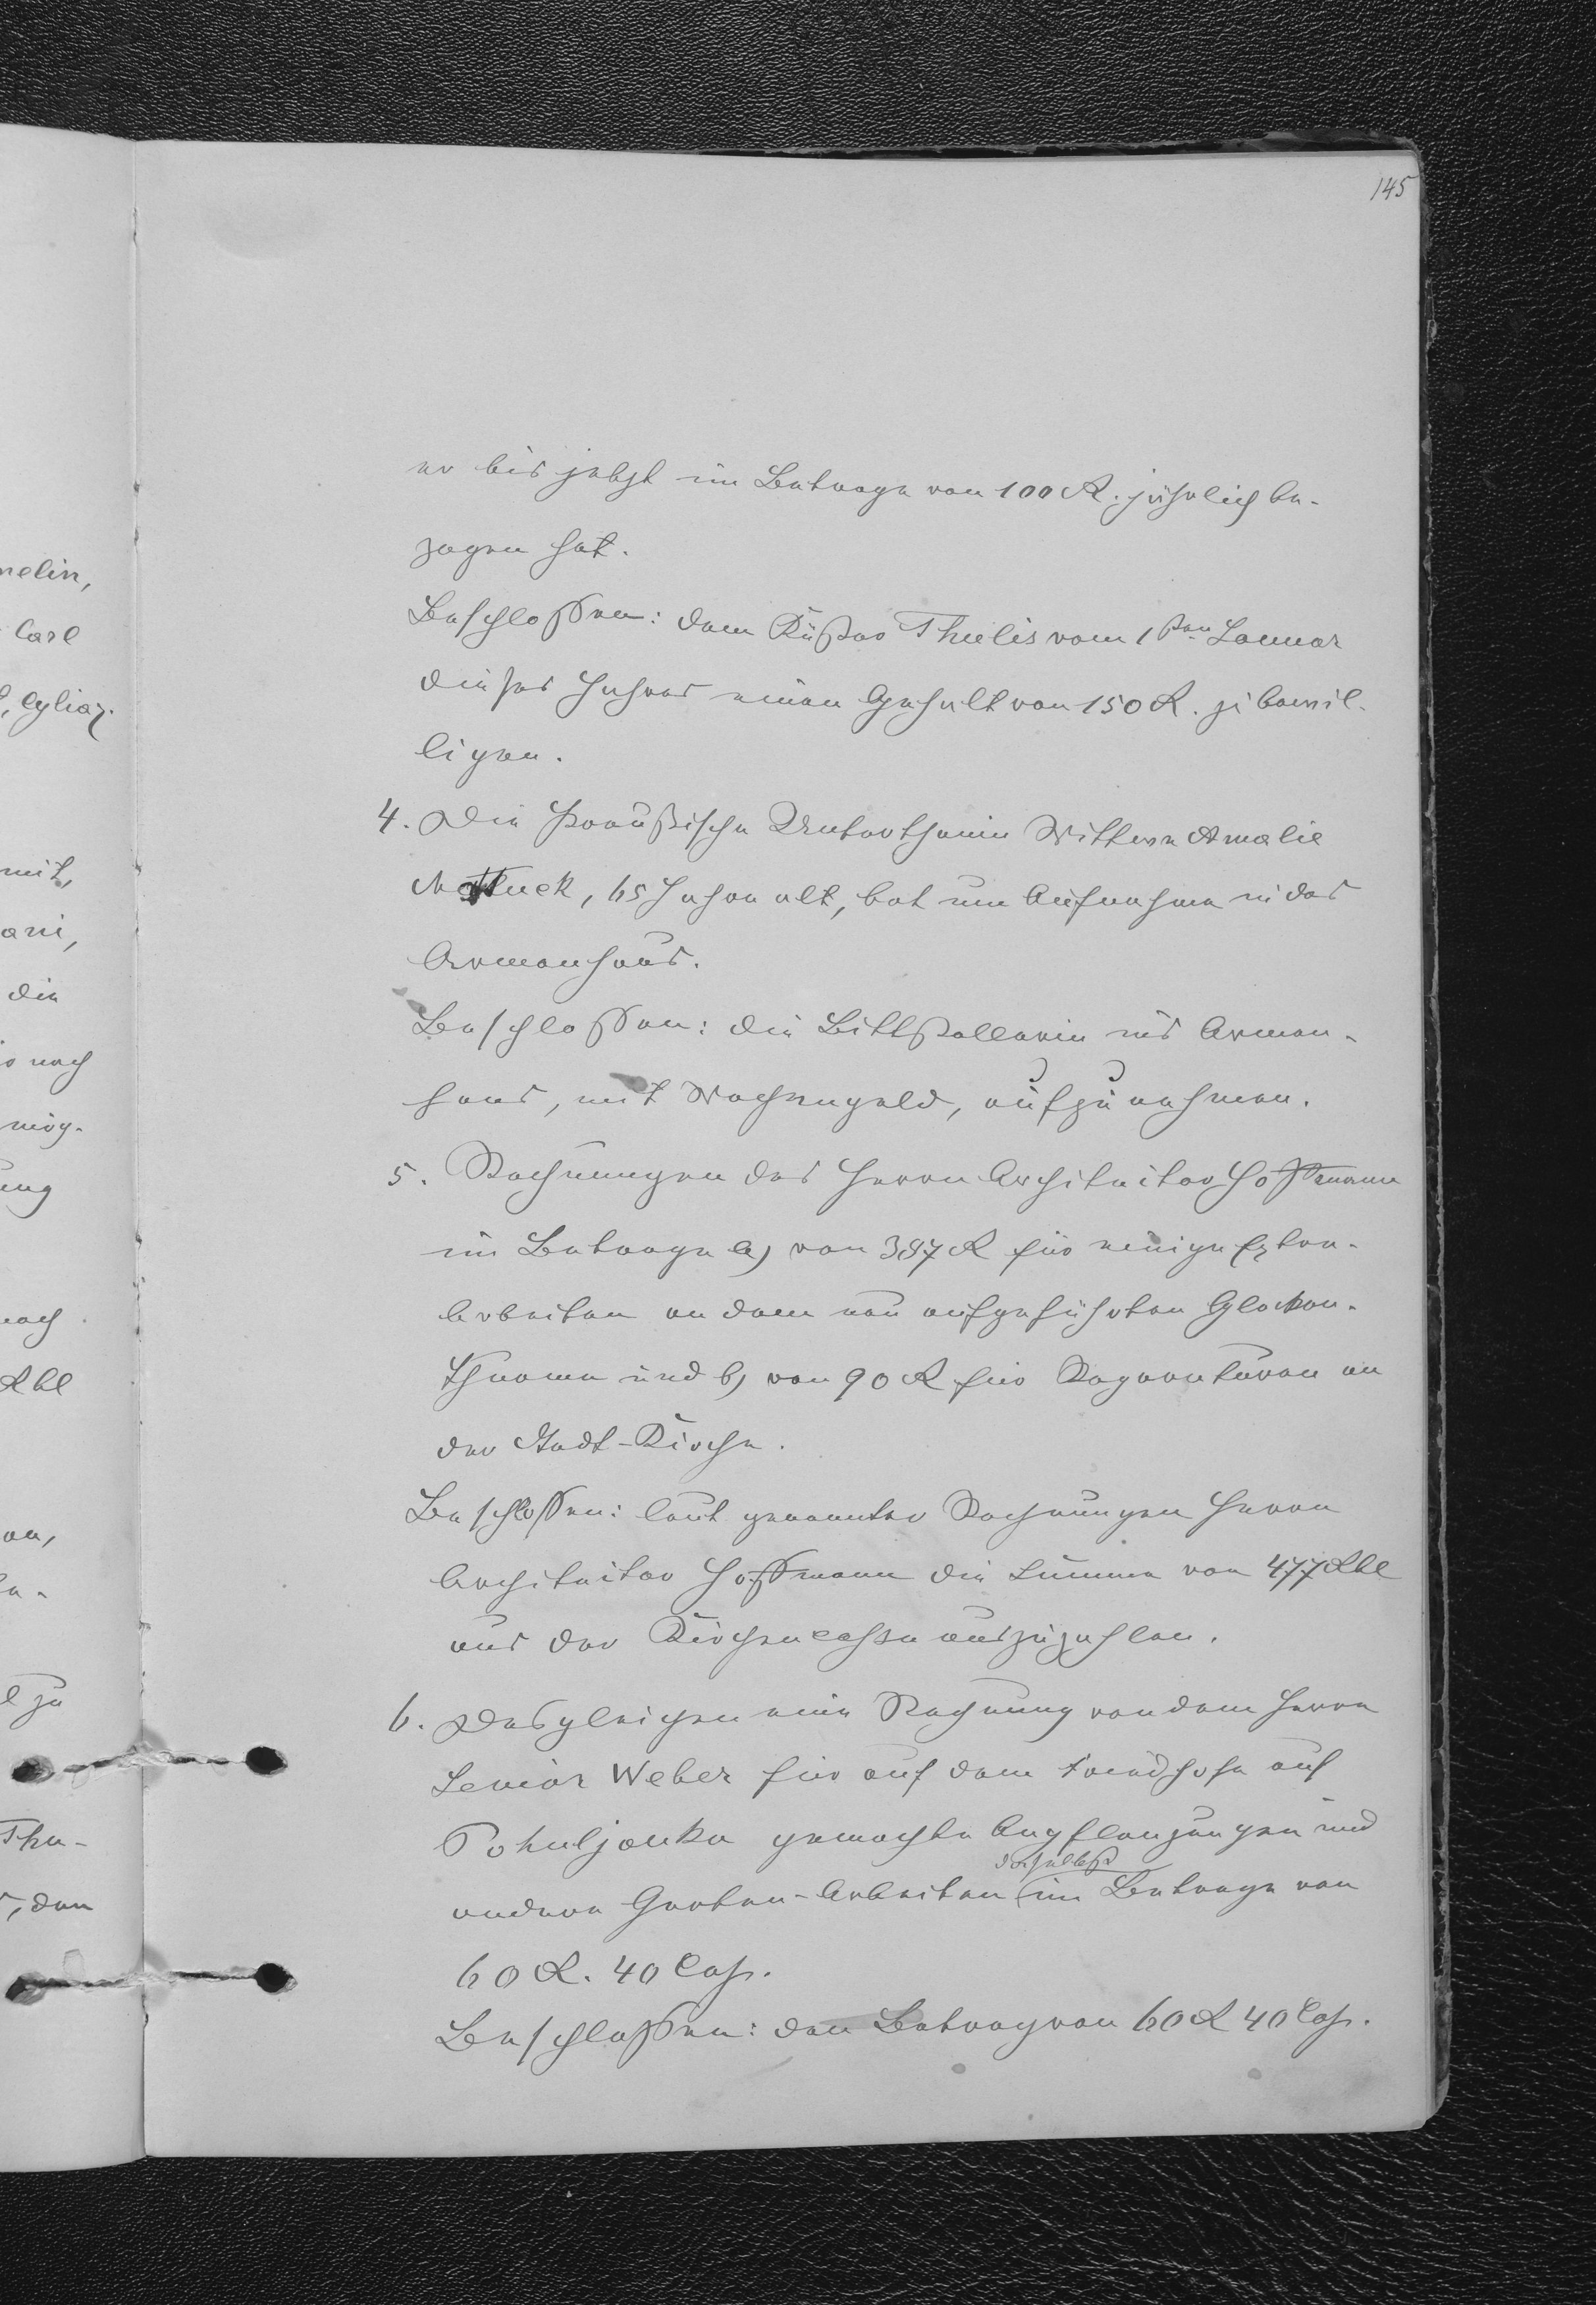 145
er bis jetzt im Betrage von 100 R. jährlich be-
zogen hat.
Beschloßen: dem Küster Thielis vom 1sten Januar
dieses Jahres einen Gehalt von 150 R. zu bewil-
ligen.
4. Die Preußische Unterthanin Wittwe Amalie
Mattuck, 65 Jahre alt, bat um Aufnahme in das
Armenhaus.
Beschloßen: die Bittstellerin ins Armen-
haus, mit Wochengeld, aufzunehmen.
5. Rechnungen des Herrn Architector Hoffmann
im Betrage a) von 387 R für einige Extra-
Arbeiten an dem neu aufgeführten Glocken-
Thurme und b) von 90 R für Reparaturen an
der Stadt-Kirche.
Beschloßen: laut genannter Rechnungen Herrn
Architector Hoffmann die Summe von 477 Rbl
aus der Kirchencasse auszuzahlen.
6. Desgleichen eine Rechnung von dem Herrn
Senior Weber für auf dem Friedhofe auf
Pohuljanka gemachte Anpflanzungen und
andere Garten-Arbeiten daselbst im Betrage von
60 R. 40 Cop.
Beschloßen: den Betrag von 60 R 40 Cop.
nelin,
Carl
mit,
ani,
die
nach
mög-
ung
nach
Rbl
en,
l zu
Thu-
, den